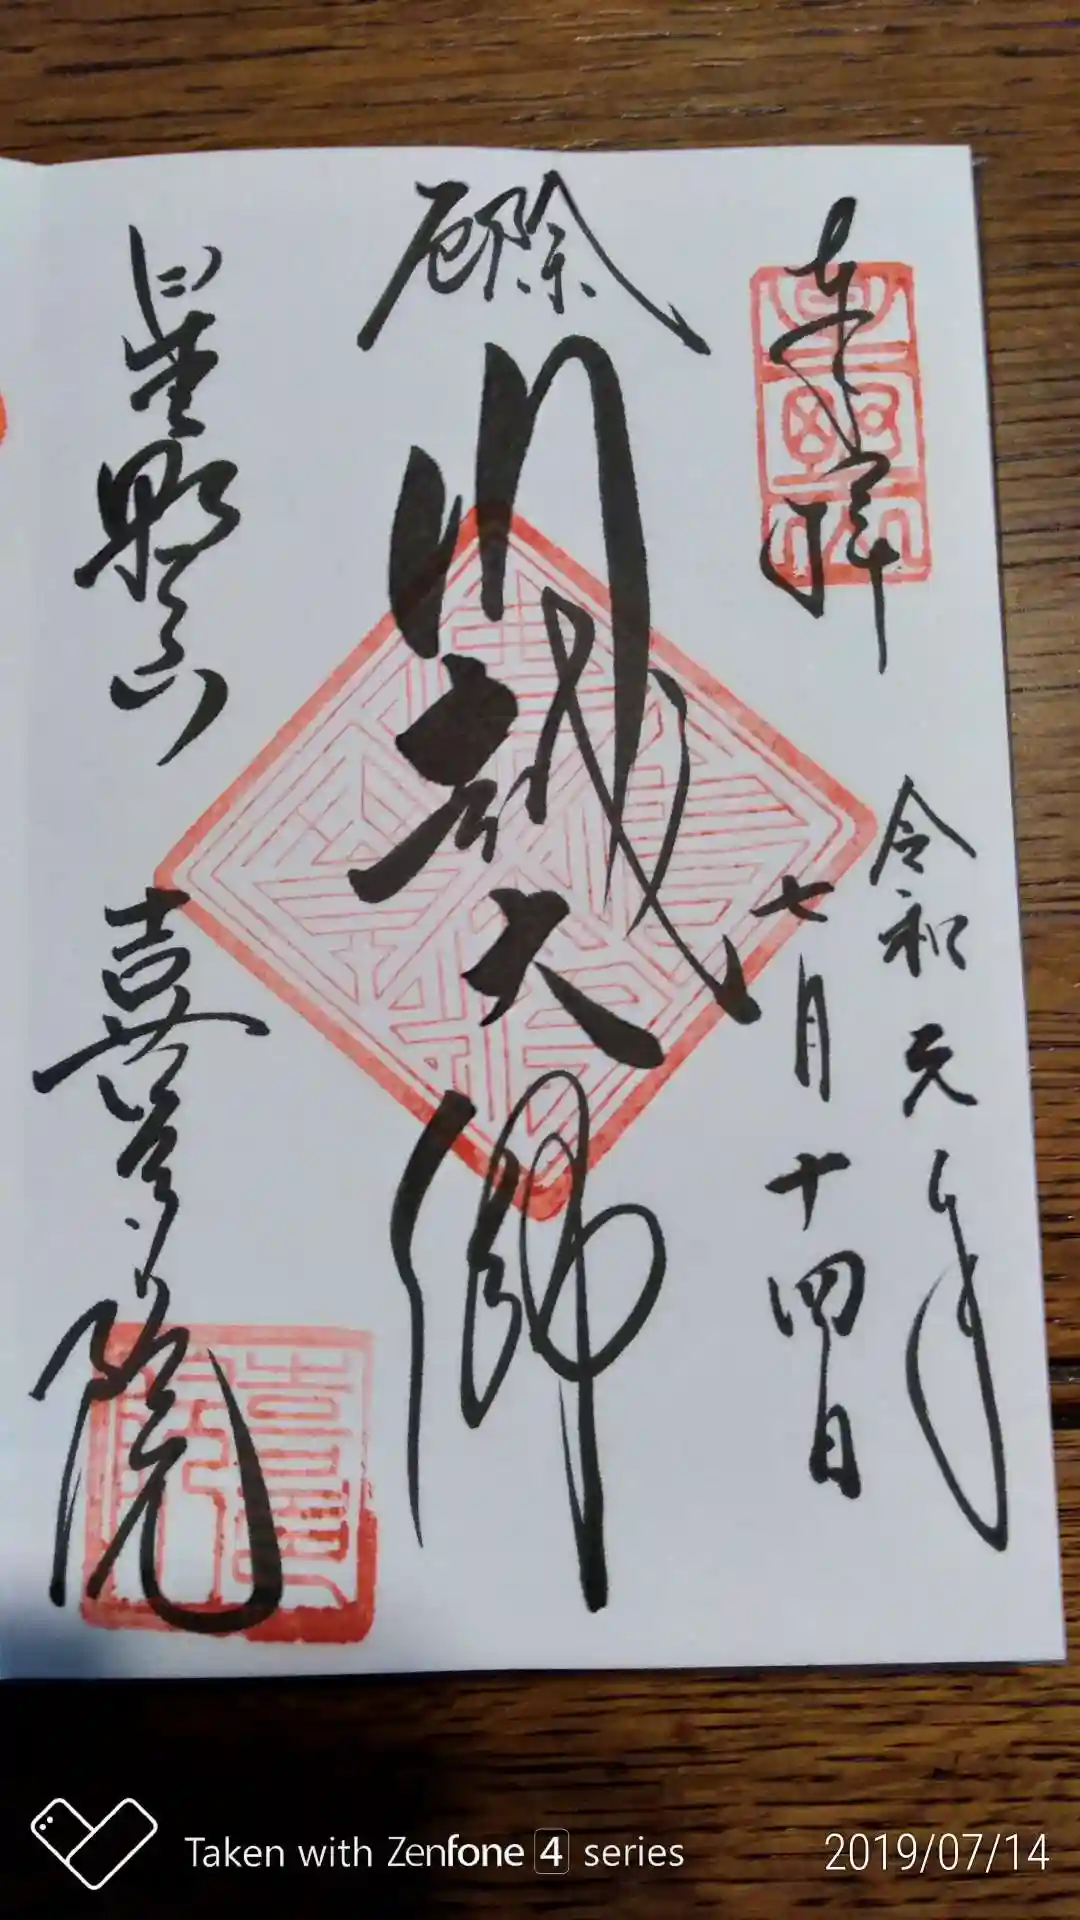 奉拝
令和元年
七月十四日
厄除
川越大師
星野山
喜多院
喜多院
Taken with Zenfone 4 series
2019/07/14